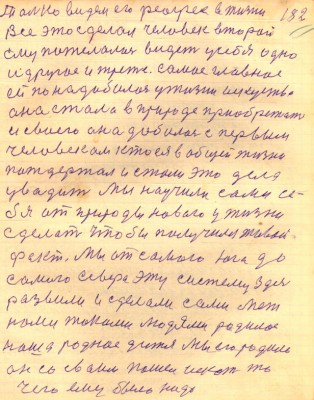 только видем его расрек в жизни 132
Все это сделал человек второй
ему пожелалая видет у себя одно
и другое и трете. самое главное
ей понадобилося у жизни искуство
она стала в природе приобретат
и своего она добилас с первым
человекам кто ся в общей жизни
поддержал и стали это дела
уважат Мы научили сами се-
бя от природы нового у жизни
сделат чтобы получился живой
факт. Мы от самого юга до
самого севера эту систему здея
развили и сделали сами меж
нами такими людями родилос
наша родное детя Мы его родили
он со своим пошел искат то
чего ему было надо